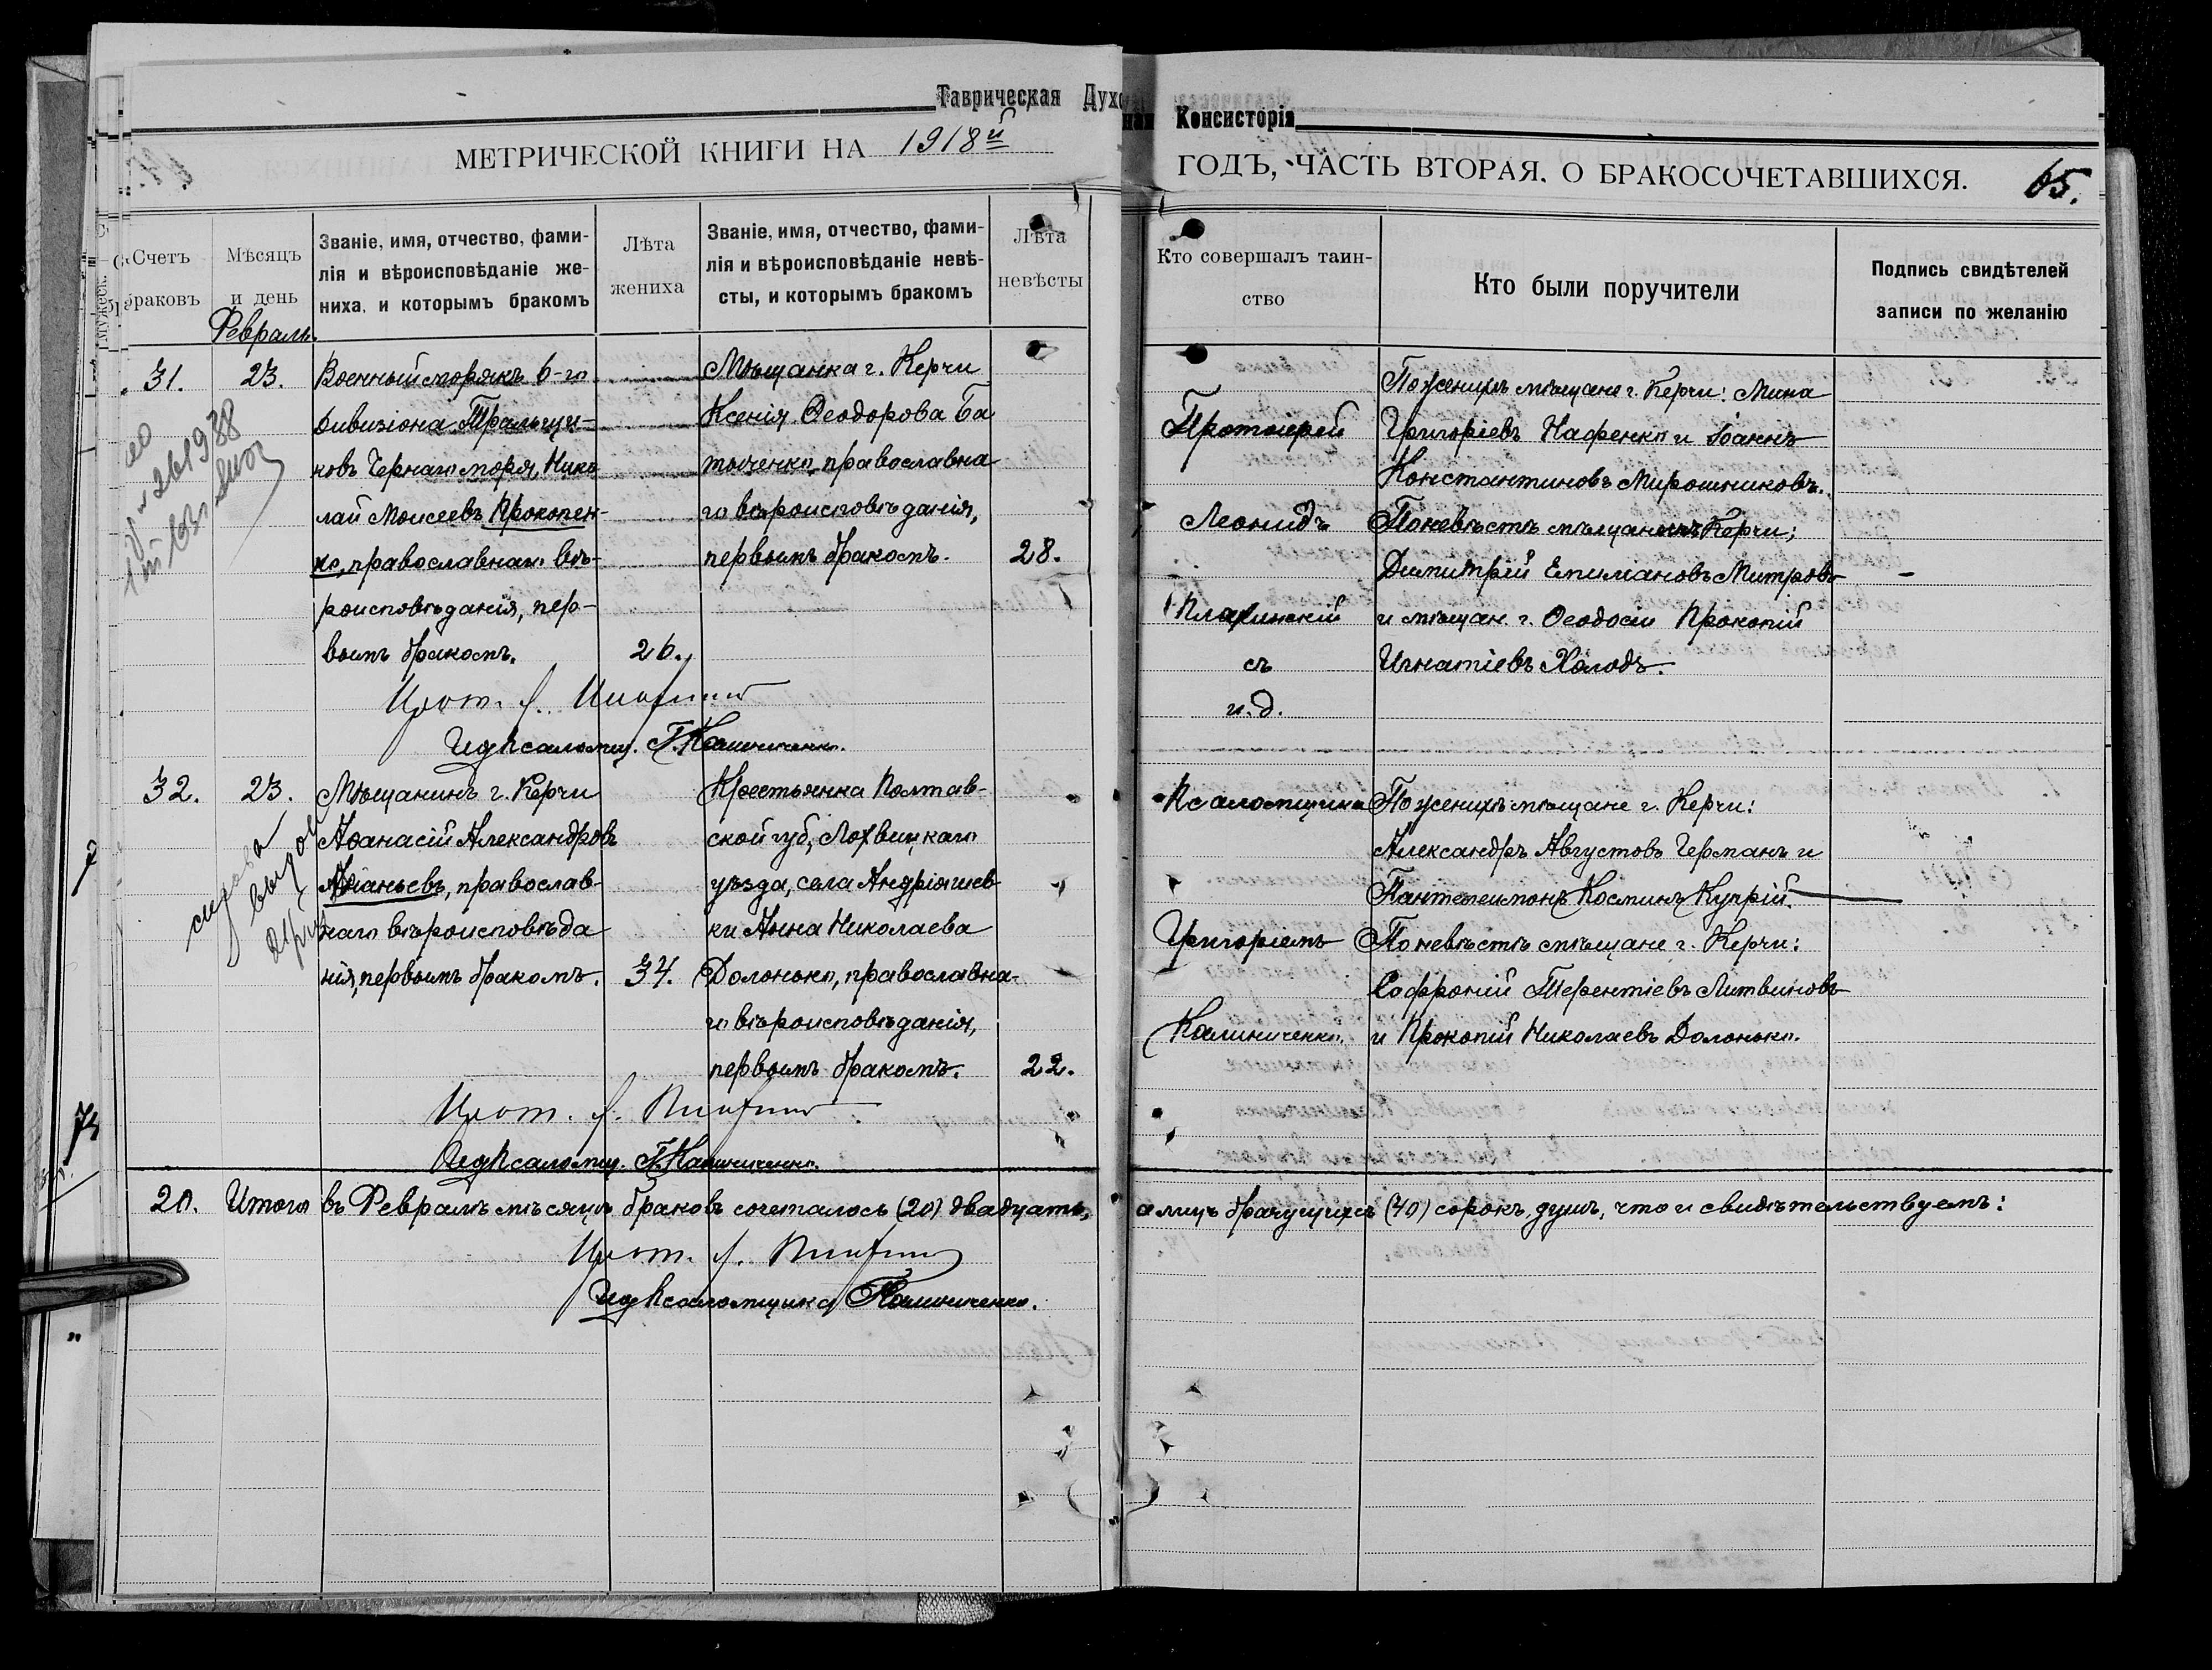 Таврическая Духо
ная Консисторія
МЕТРИЧЕСКОЙ КНИГИ НА 1918й
ГОДЪ, ЧАСТЬ ВТОРАЯ. О БРАКОСОЧЕТАВШИХСЯ.
65.
Счетъ
браковъ
Мѣсяцъ
и день
Званіе, имя, отчество, фами-
лія и вѣроисповѣданіе же-
ниха, и которымъ бракомъ
Лѣта
жениха
Званіе, имя, отчество, фами-
лія и вѣроисповѣданіе невѣ-
сты, и которымъ бракомъ
Лѣта
невѣсты
Кто совершалъ таин-
ство
Кто были поручители
Подпись свидѣтелей
записи по желанію
Февраль.
31.
23.
Военный морякъ 6-го
дивизіона Тральщи-
ковъ Чернаго моря, Нико
лай Моисеевъ Прокопен-
ко, православнаго вѣ-
роисповѣданія, пер-
вымъ бракомъ.
26.
Мѣщанка г. Керчи
Ксенія Ѳеодорова Ба
тыченко, православна
го вѣроисповѣданія,
первымъ бракомъ.
28.
Прот. Л.
Ид Псаломщ. Г. Калиниченко.
Протоіерей
Леонидъ
съ
и. д.
Псаломщика
Григоріемъ
Калиниченко.
По женихѣ мѣщане г. Керчи: Мина
Григоріевъ Нафенко и Іоаннъ
Константиновъ Мирошниковъ.
По невѣстѣ мѣщан. г. Керчи;
Димитрій Епиміановъ Митровъ
и мѣщан. г. Ѳеодосіи Прокопій
Игнатіевъ Холодъ.
32.
23.
Мѣщанинъ г. Керчи
Аѳанасій Александровъ
Ананьевъ, православ-
наго вѣроисповѣда
нія, первымъ бракомъ.
34.
Крестьянка Полтав-
ской губ., Лохвицкаго
уѣзда, села Андріяшев-
ки Анна Николаева
Долонько, православна-
го вѣроисповѣданія,
первымъ бракомъ.
22.
Прот. Л.
Ид Псаломщ. Г. Калиниченко.
По женихѣ мѣщане г. Керчи:
Александръ Августовъ Германъ и
Пантелеимонъ Косминъ Купрій.
По невѣстѣ мѣщане г. Керчи:
Софроній Терентіевъ Литвиновъ
и Прокопій Николаевъ Долонько.
20.
Итого въ Февралѣ мѣсяцѣ браковъ сочеталось (20) двадцать,
а лицъ брачущихся (40) сорокъ душъ, что и свидѣтельствуемъ:
Прот. Л.
Ид Псаломщика Г. Калиниченко.